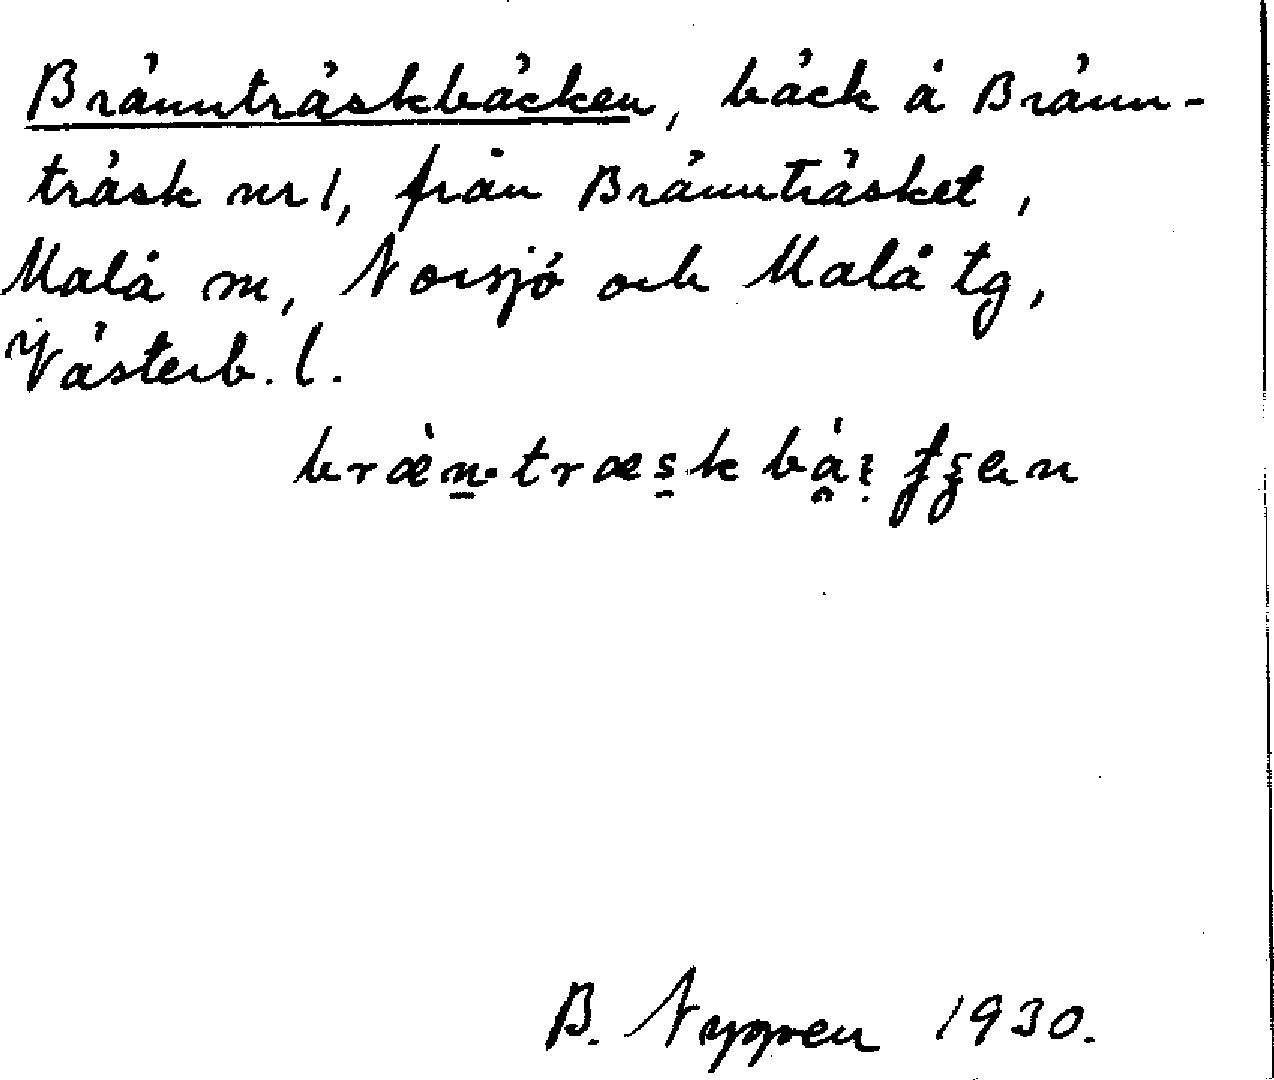 Brännträskbäcken, bäck å Bränn-
träsk nr 1, från Brännträsket,
Malå sn, Norsjö och Malå tg,
Västerb. l.
B. Nygren 1930.